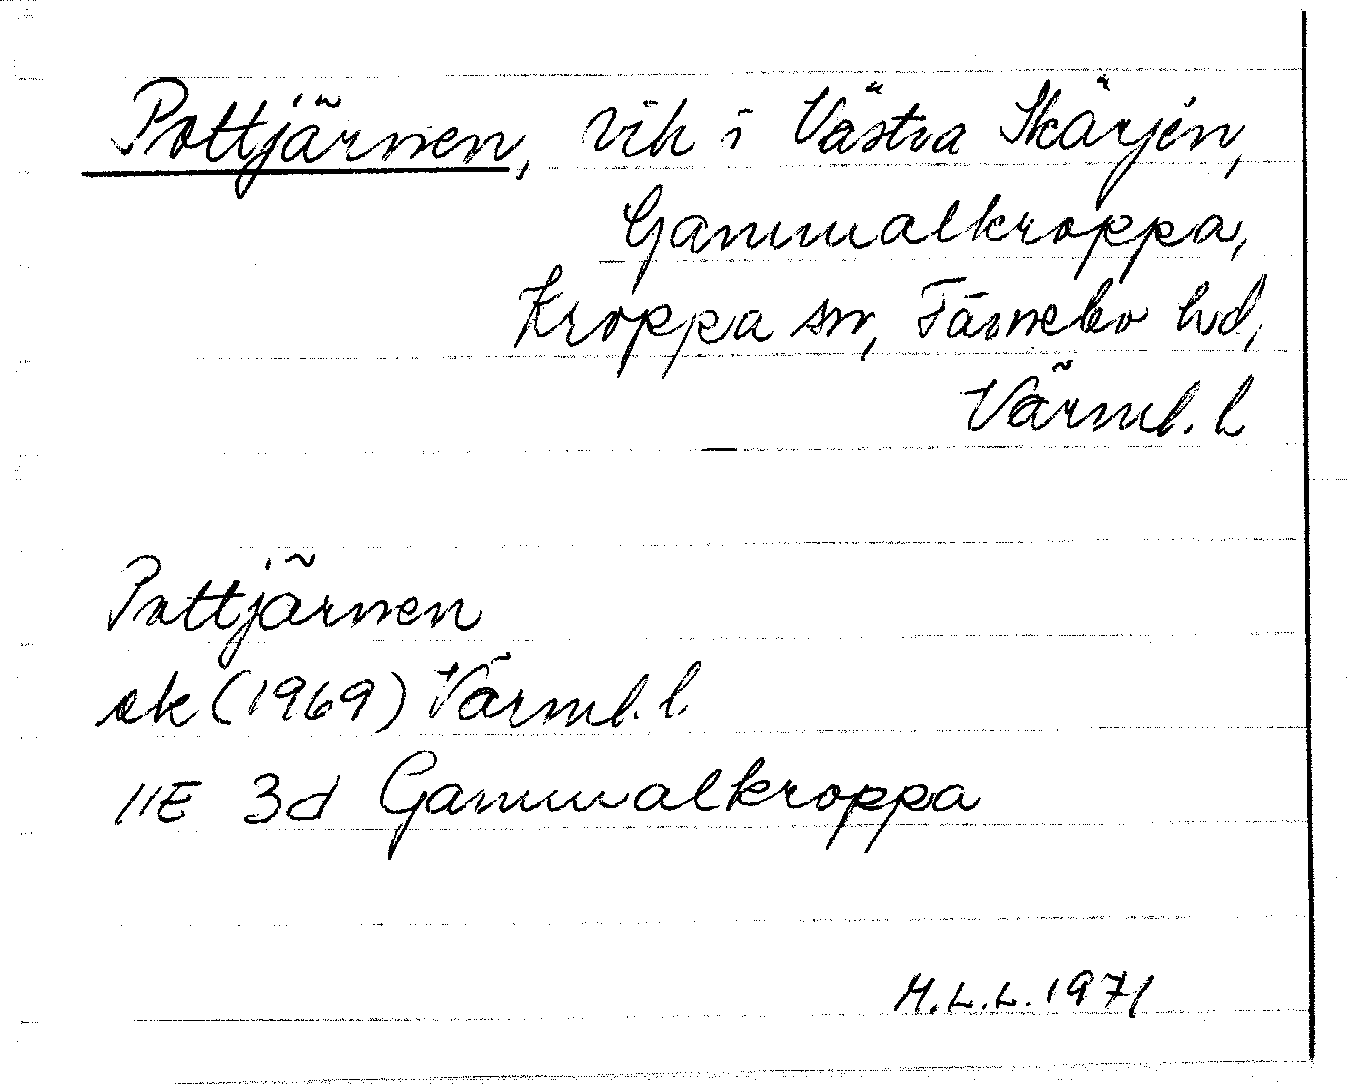 Pottjärnen, vik i Västra Skärjen,
Gammalkroppa,
Kroppa sn, Färnebo hd,
Värml. l
Pottjärnen
ek (1969) Värml. l.
11E 3d Gammalkroppa
M.L.L. 1971